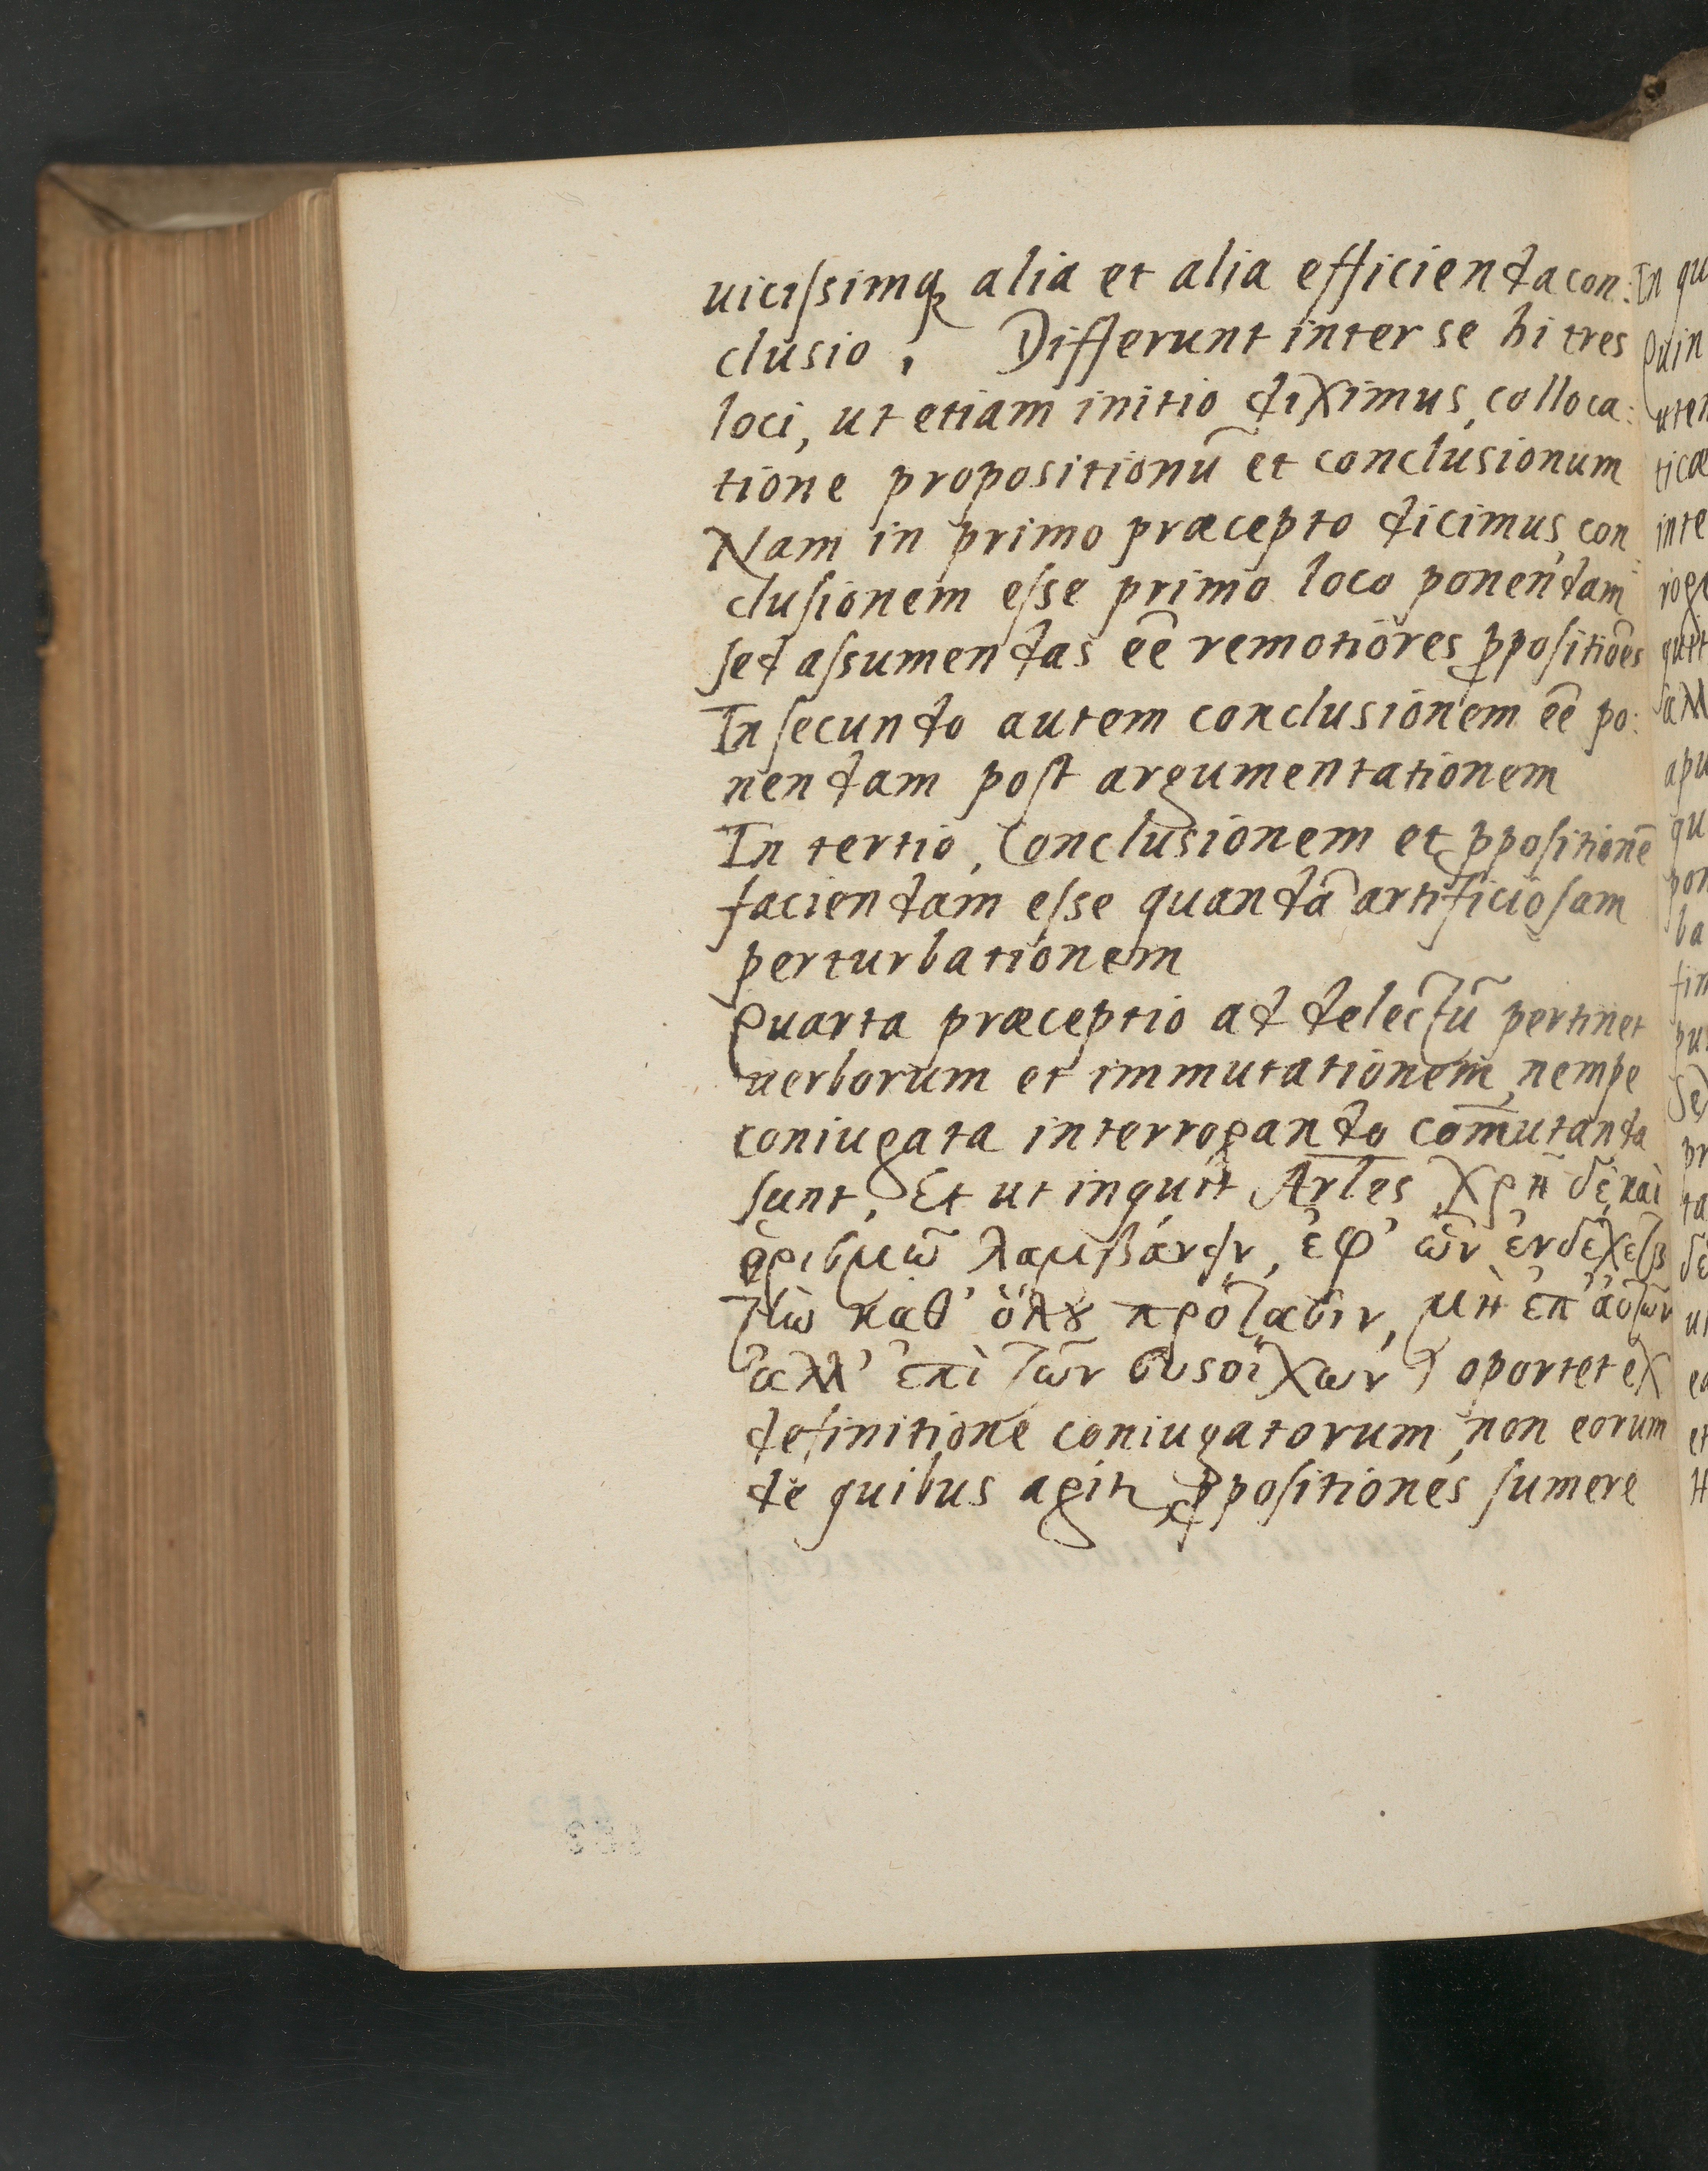 uicissimq; alia et alia efficienda con:
clusio, Differunt inter se hi tres
loci, ut etiam initio diximus, colloca:
tione propositionũ et conclusionum
Nam in primo præcepto dicimus, con:
clusionem esse primo loco ponendam
sed assumendas eẽ remotiores ꝓpositiões
In secundo autem conclusionem eẽ po:
nendam post argumentationem
In tertio, Conclusionem et ꝓpositionẽ
faciendam esse quandã artificiosam
perturbationem
Quarta præceptio ad delectũ pertinet
uerborum et immutationem, nempe
coniugata interrogando com̃utanda
sunt, Et ut inquit Arles χρὴ δὲ καὶ
ὁρισμῶ λαμβάνειν, ἐφ' ὧν ἐνδέχεται
τὴν καθ' ὅλου πρότασιν, μὴ ἐπ' ἀυτῶν
ἀλλ' ἐπὶ τῶν συστοίχων) oportet ex
definitione coniugatorum, non eorum
de quibus agitr, ꝓpositiones sumere